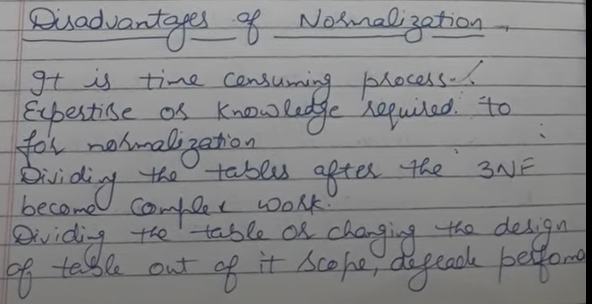 Disadvantages of Normalization
It is time consuming process.
Expertise or knowledge required. to
for normalization
Dividing the tables after the 3NF
become complex work.
Dividing the table or changing the design
of table out of it scope, degrade perfoma